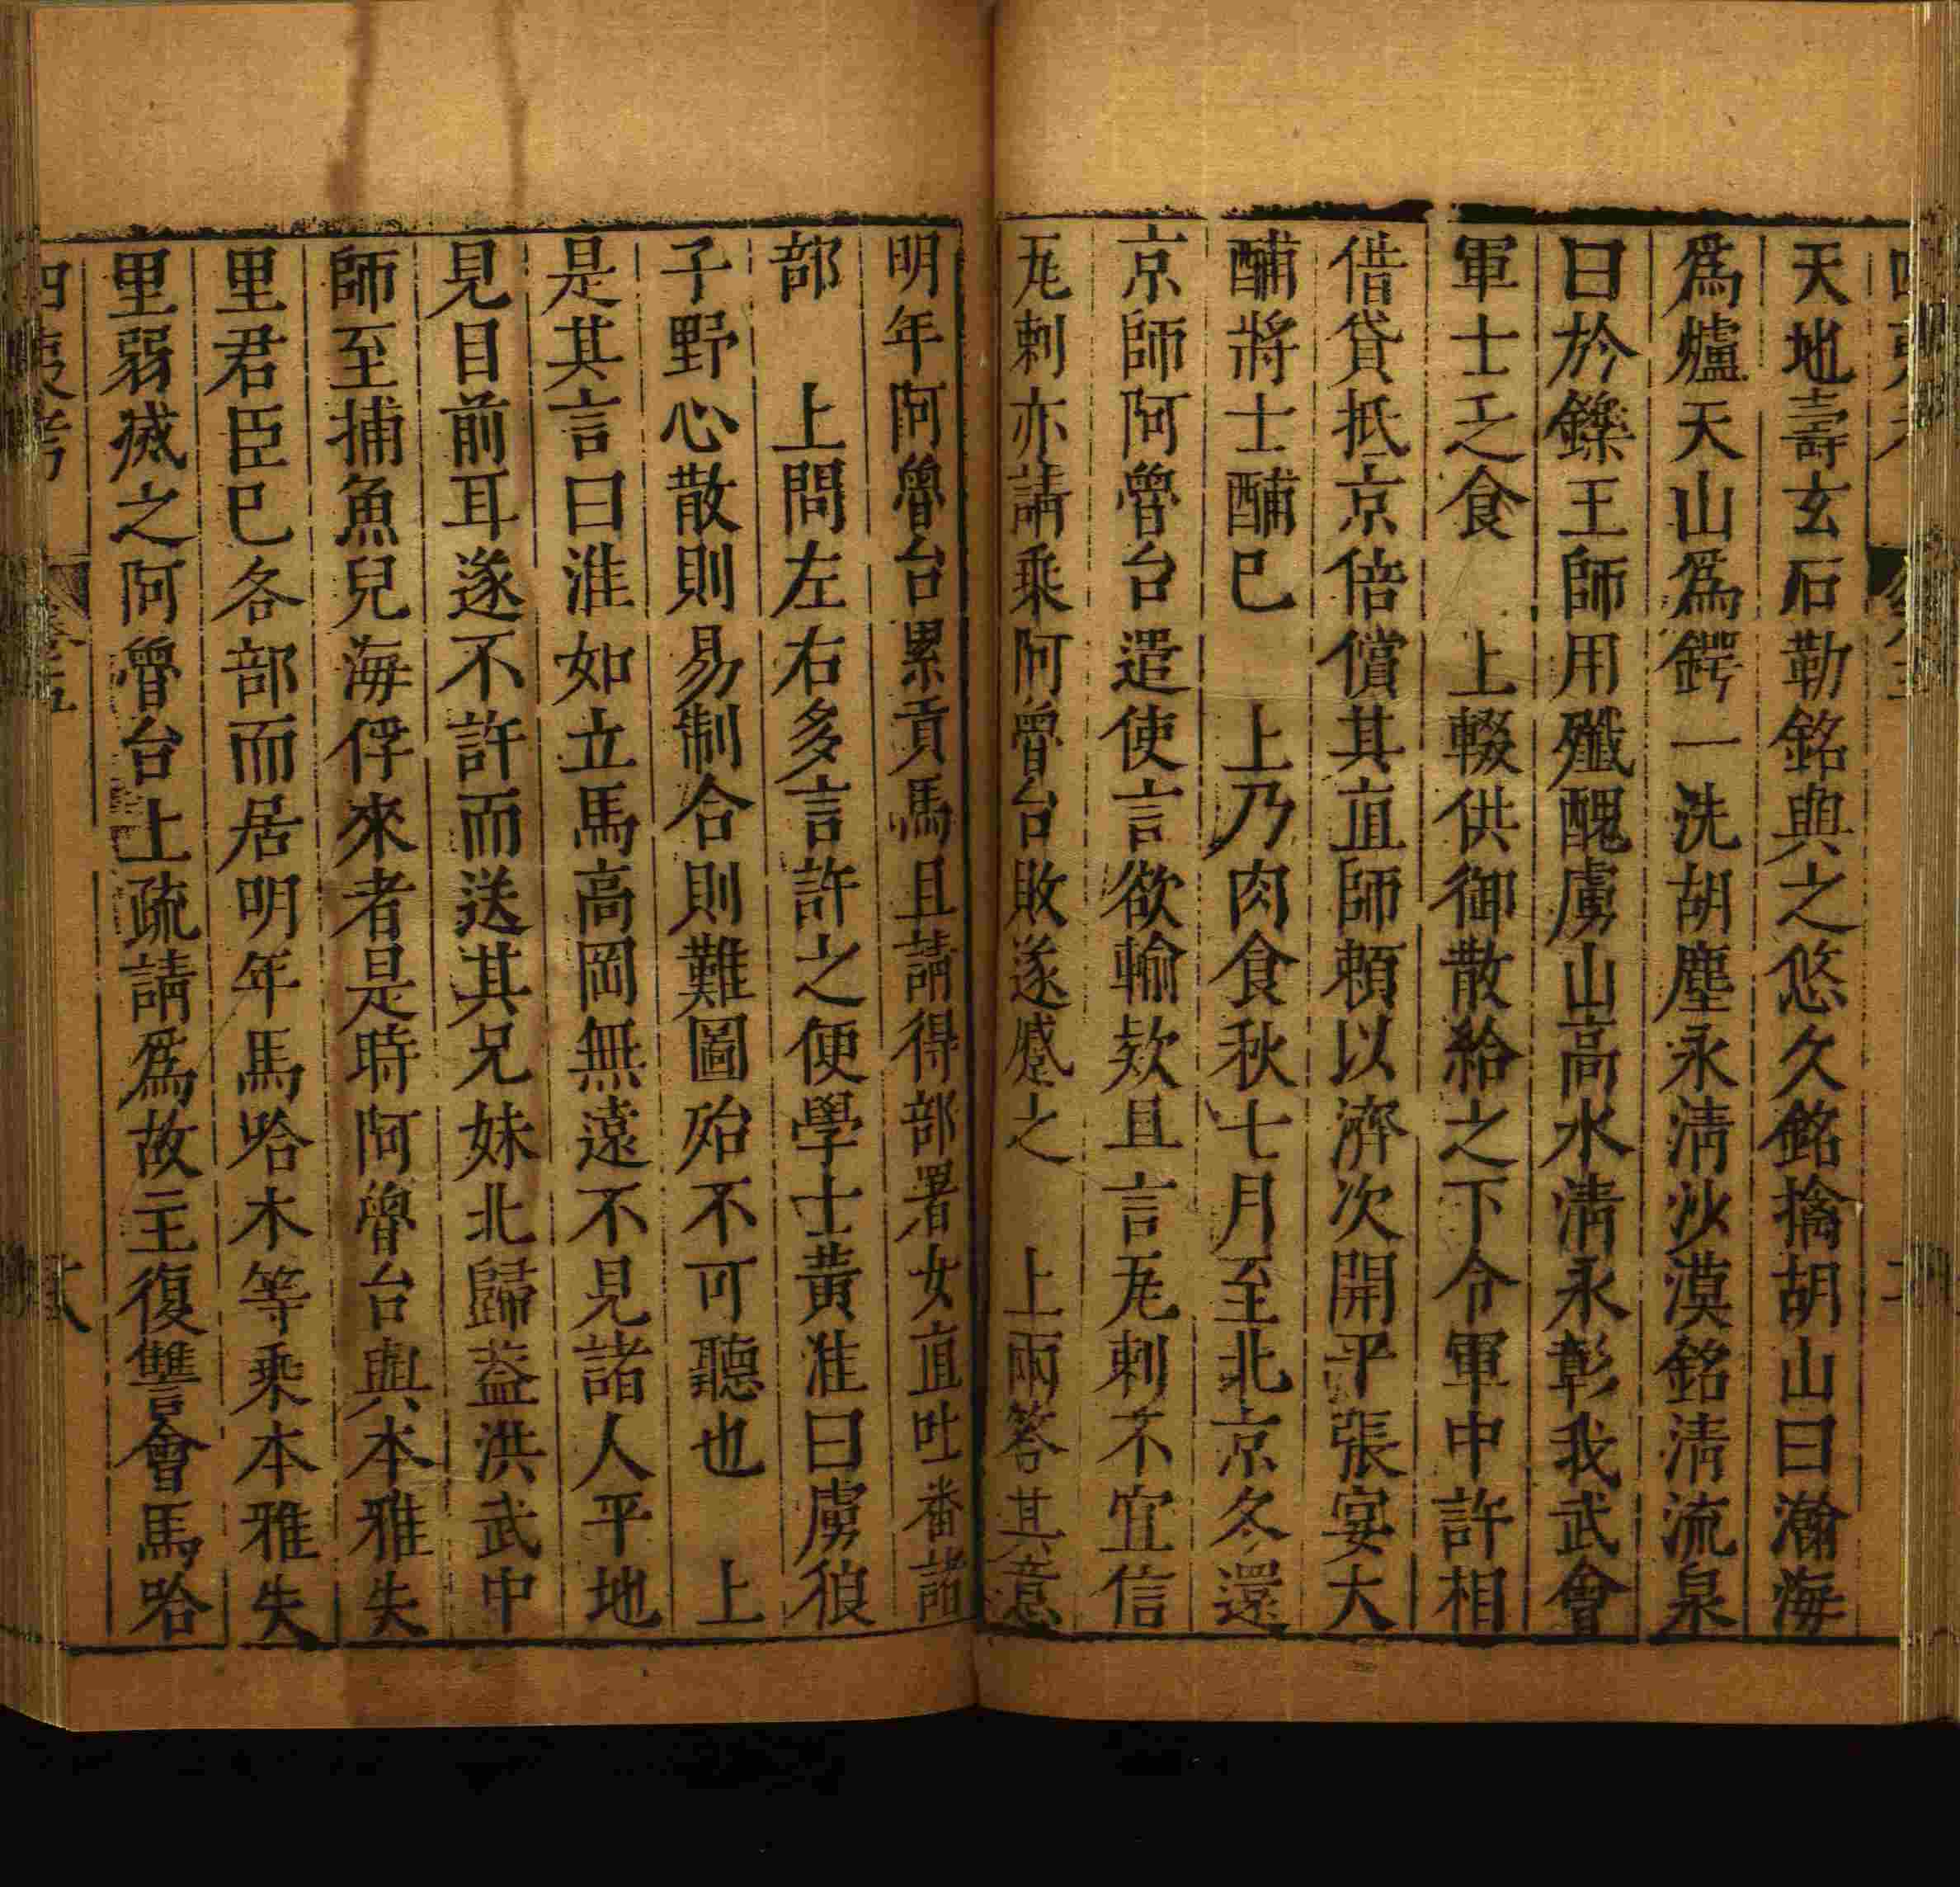 天地壽玄石勒銘與之悠久銘擒胡山曰瀚海
爲爐天山爲鍔一洗胡塵永淸沙漠銘淸流泉
曰於鑠王師用殲醜虜山高水淸永彰我武會
軍士乏食　上輟供御散給之下令軍中許相
借貸抵京倍償其直師頼以濟次開平張宴大
酺將士酺已　上乃肉食秋七月至北京冬還
京師阿魯台遣使言欲輸欵且言瓦剌不宜信
瓦剌亦請乗阿魯台敗遂蹙之　上兩答其意
明年阿魯台累貢馬且請得部署女直吐番諸
部　上問左右多言許之便學士黃淮曰虜狼
子野心散則易制合則難圖殆不可聽也　上
是其言曰淮如立馬高岡無遠不見諸人平地
見目前耳遂不許而送其兄妹北歸益洪武中
師至捕魚兒海俘來者是時阿魯台與本雅失
里君臣已各部而居明年馬哈木等乗本雅失
里弱滅之阿魯台上疏請爲故主復讐會馬哈
四夷考
卷五